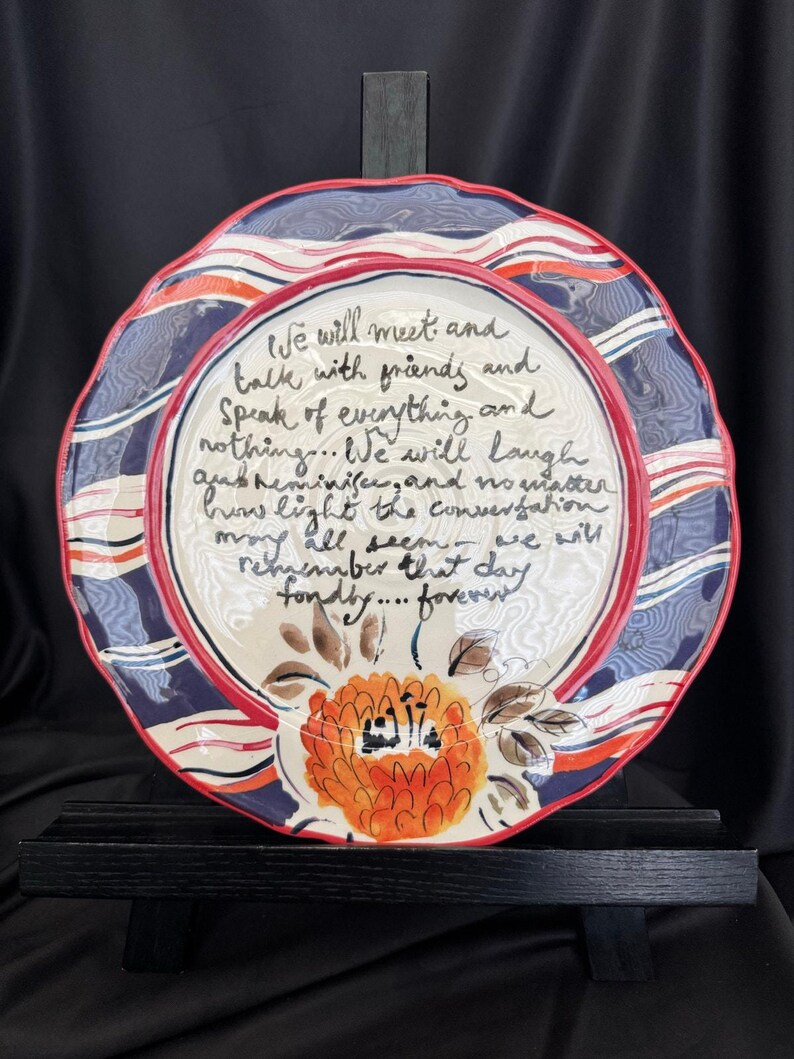 We will meet and
talk with friends and
Speak of everything and
nothing... We will laugh
and reminisce, and no matter
how light the conversation
may all seem - we will
remember that day
fondly.... forever